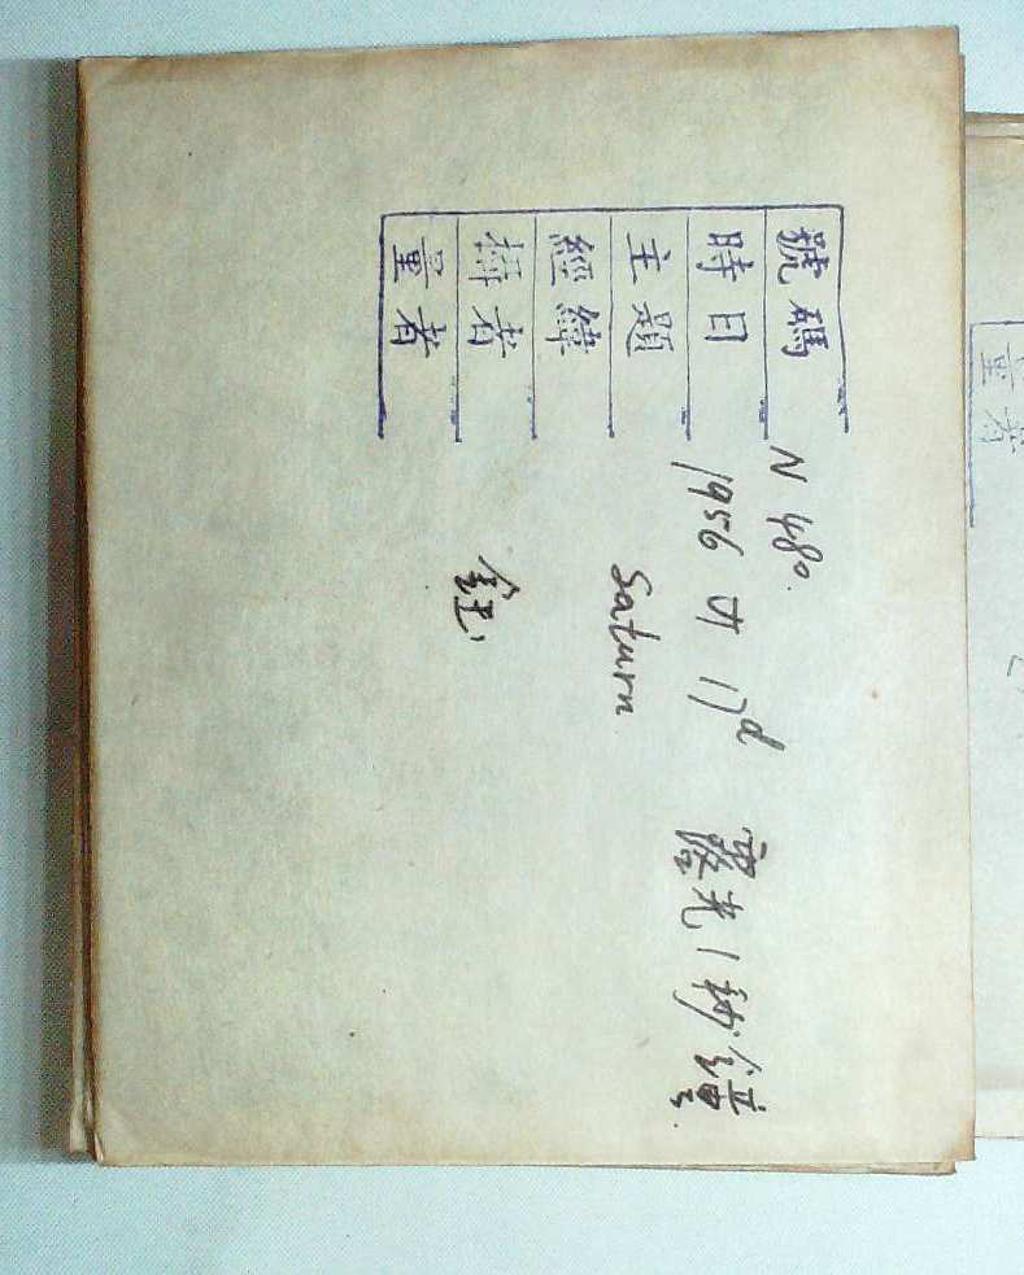 號碼 N 480.
時日 1956 17d 露光 1 秒鐘
主題 Saturn
經緯
者
量者
量者